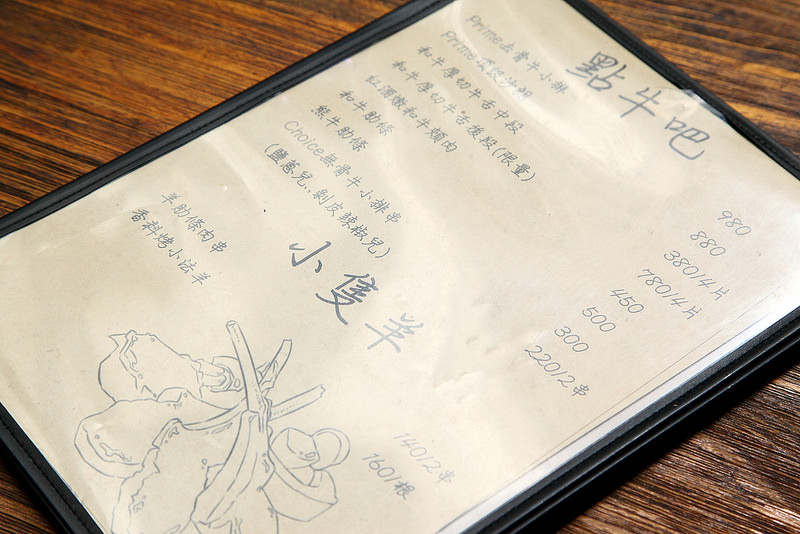 點牛吧
Prime去骨牛小排 980
Prime頂級沙朗 880
和牛厚切牛舌中段 380/4片
和牛厚切牛舌後段(限量) 780/4片
私湧燉和牛頰肉 450
和牛肋條 500
熊牛肋條 300
Choice無骨牛小排串 220/2串
(鹽蔥兒、剝皮辣椒兒)
小隻羊
羊肋條肉串 140/2串
香料烤小法羊 160/1根